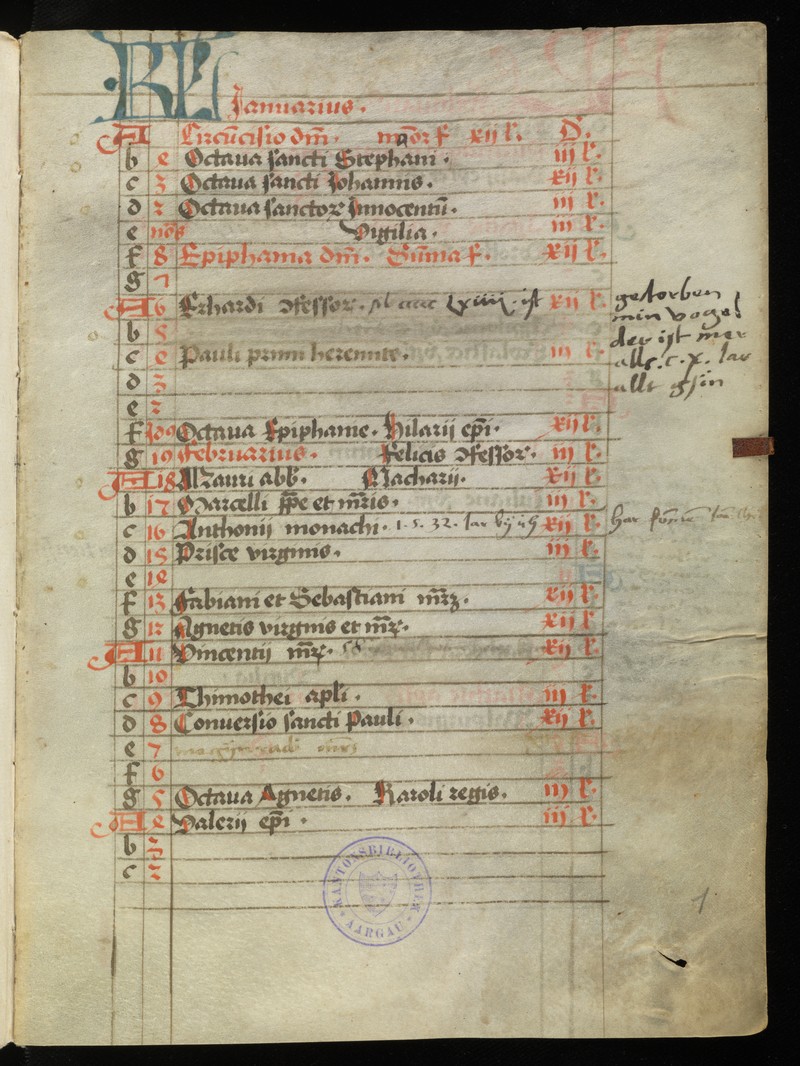 KL Januarius.
A Circumcisio dm̄. maor f. xij l. D.
b e Octaua sancti Stephani. iij l.
c 3 Octaua sancti Johannis. xij l.
d 2 Octaua sanctoꝝ Innocentū. iij l.
e noṡ Vigilia. iij l.
f 8 Epiphania dm̄. Sūma f. xij l.
g 7
A 6 Erhardi ɔfessor. Lxiiij ist xij l. gestorben
min vogel
b 5 der ist mer
c e Pauli primi heremite. iij l. alls. c. x. Iar
d 3 allt gsin
e 2
f Octaua Epiphanie. Hilarij ep̄i. xij l.
g 19 Februarius. Felicis ɔfessor. iij l.
A 18 Mauri abb. Macharij. xij l.
b 17 Marcelli pp̄e et mr̄is. iij l.
c 16 Anthonij monachi. 1. 5. 32. Iar xij l.
d 15 Prisce virginis. iij l.
e 1e
f 13 Fabiani et Sebastiani mr̄ꝝ. xij l.
g 12 Agnetis virginis et mr̄. xij l.
A 11 Vincentij mr̄. xij l.
b 10
c 9 Thimothei apl̄i. iij l.
d 8 Conuersio sancti Pauli. xij l.
e 7
f 6
g 5 Octaua Agnetis. Karoli regis. iij l.
A e Valerij ep̄i. iij l.
b 3
c 2
KANTONSBIBLIOTHEK
AARGAU
1